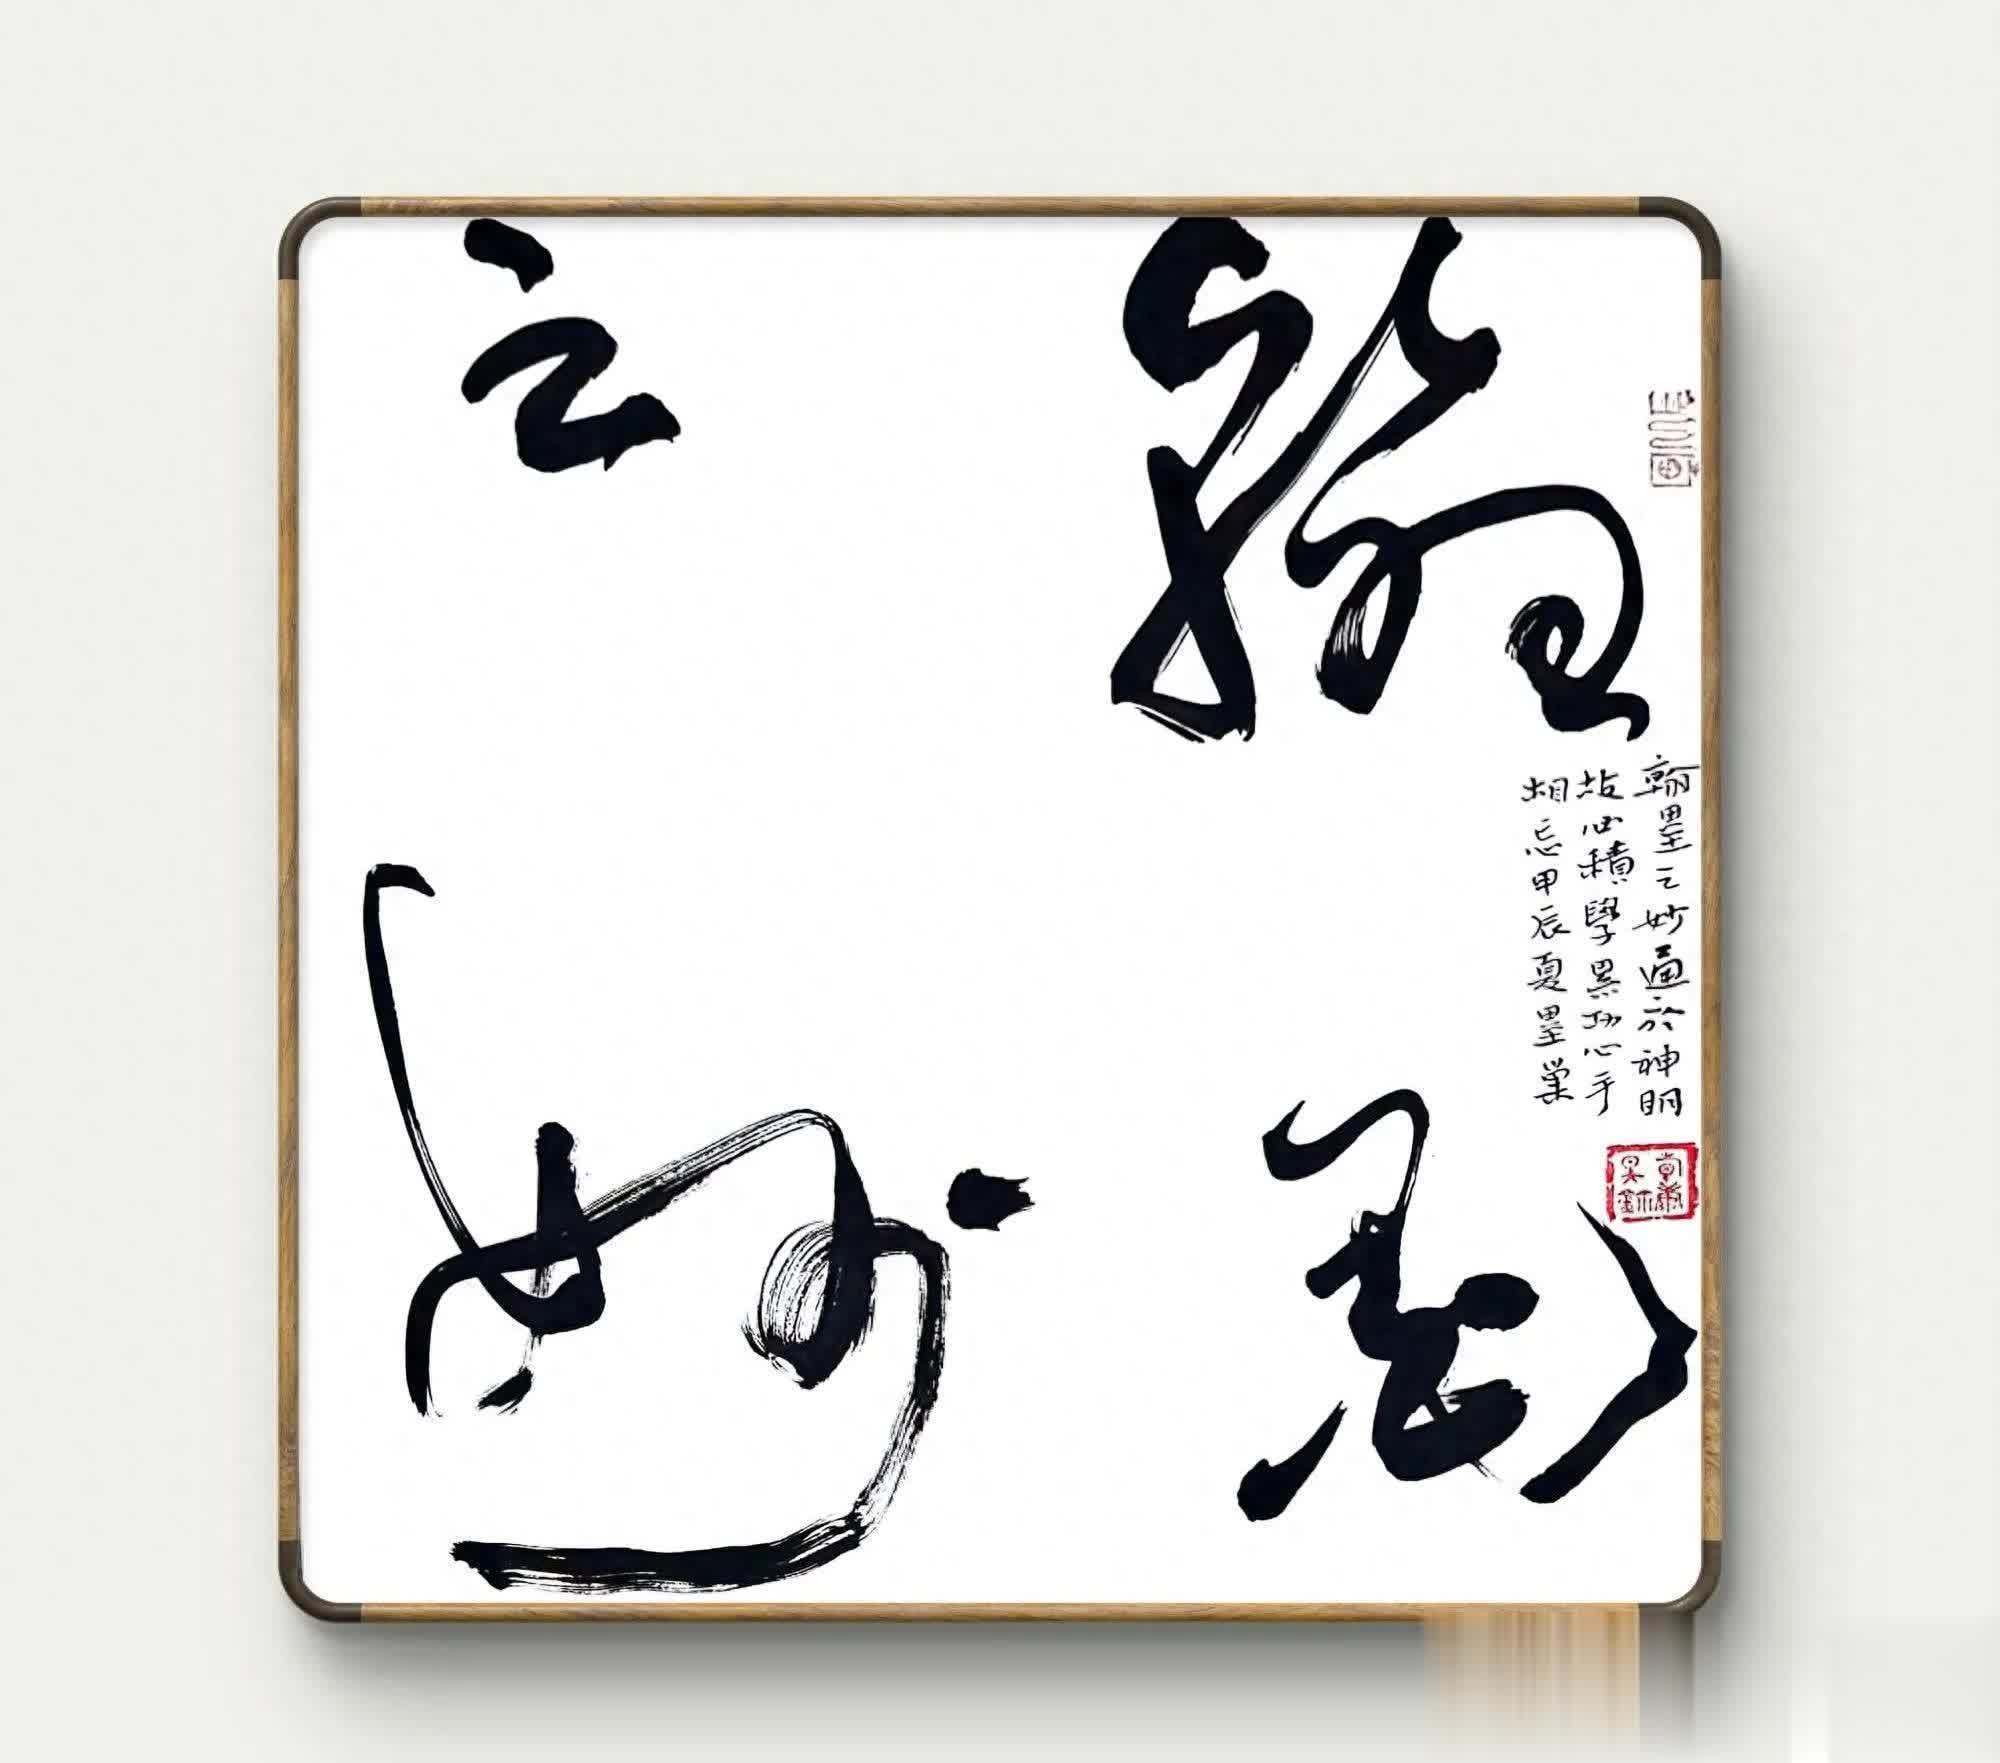 翰墨
之妙
翰墨之妙通於神明
故必積學累功心手
相忘甲辰夏墨巢